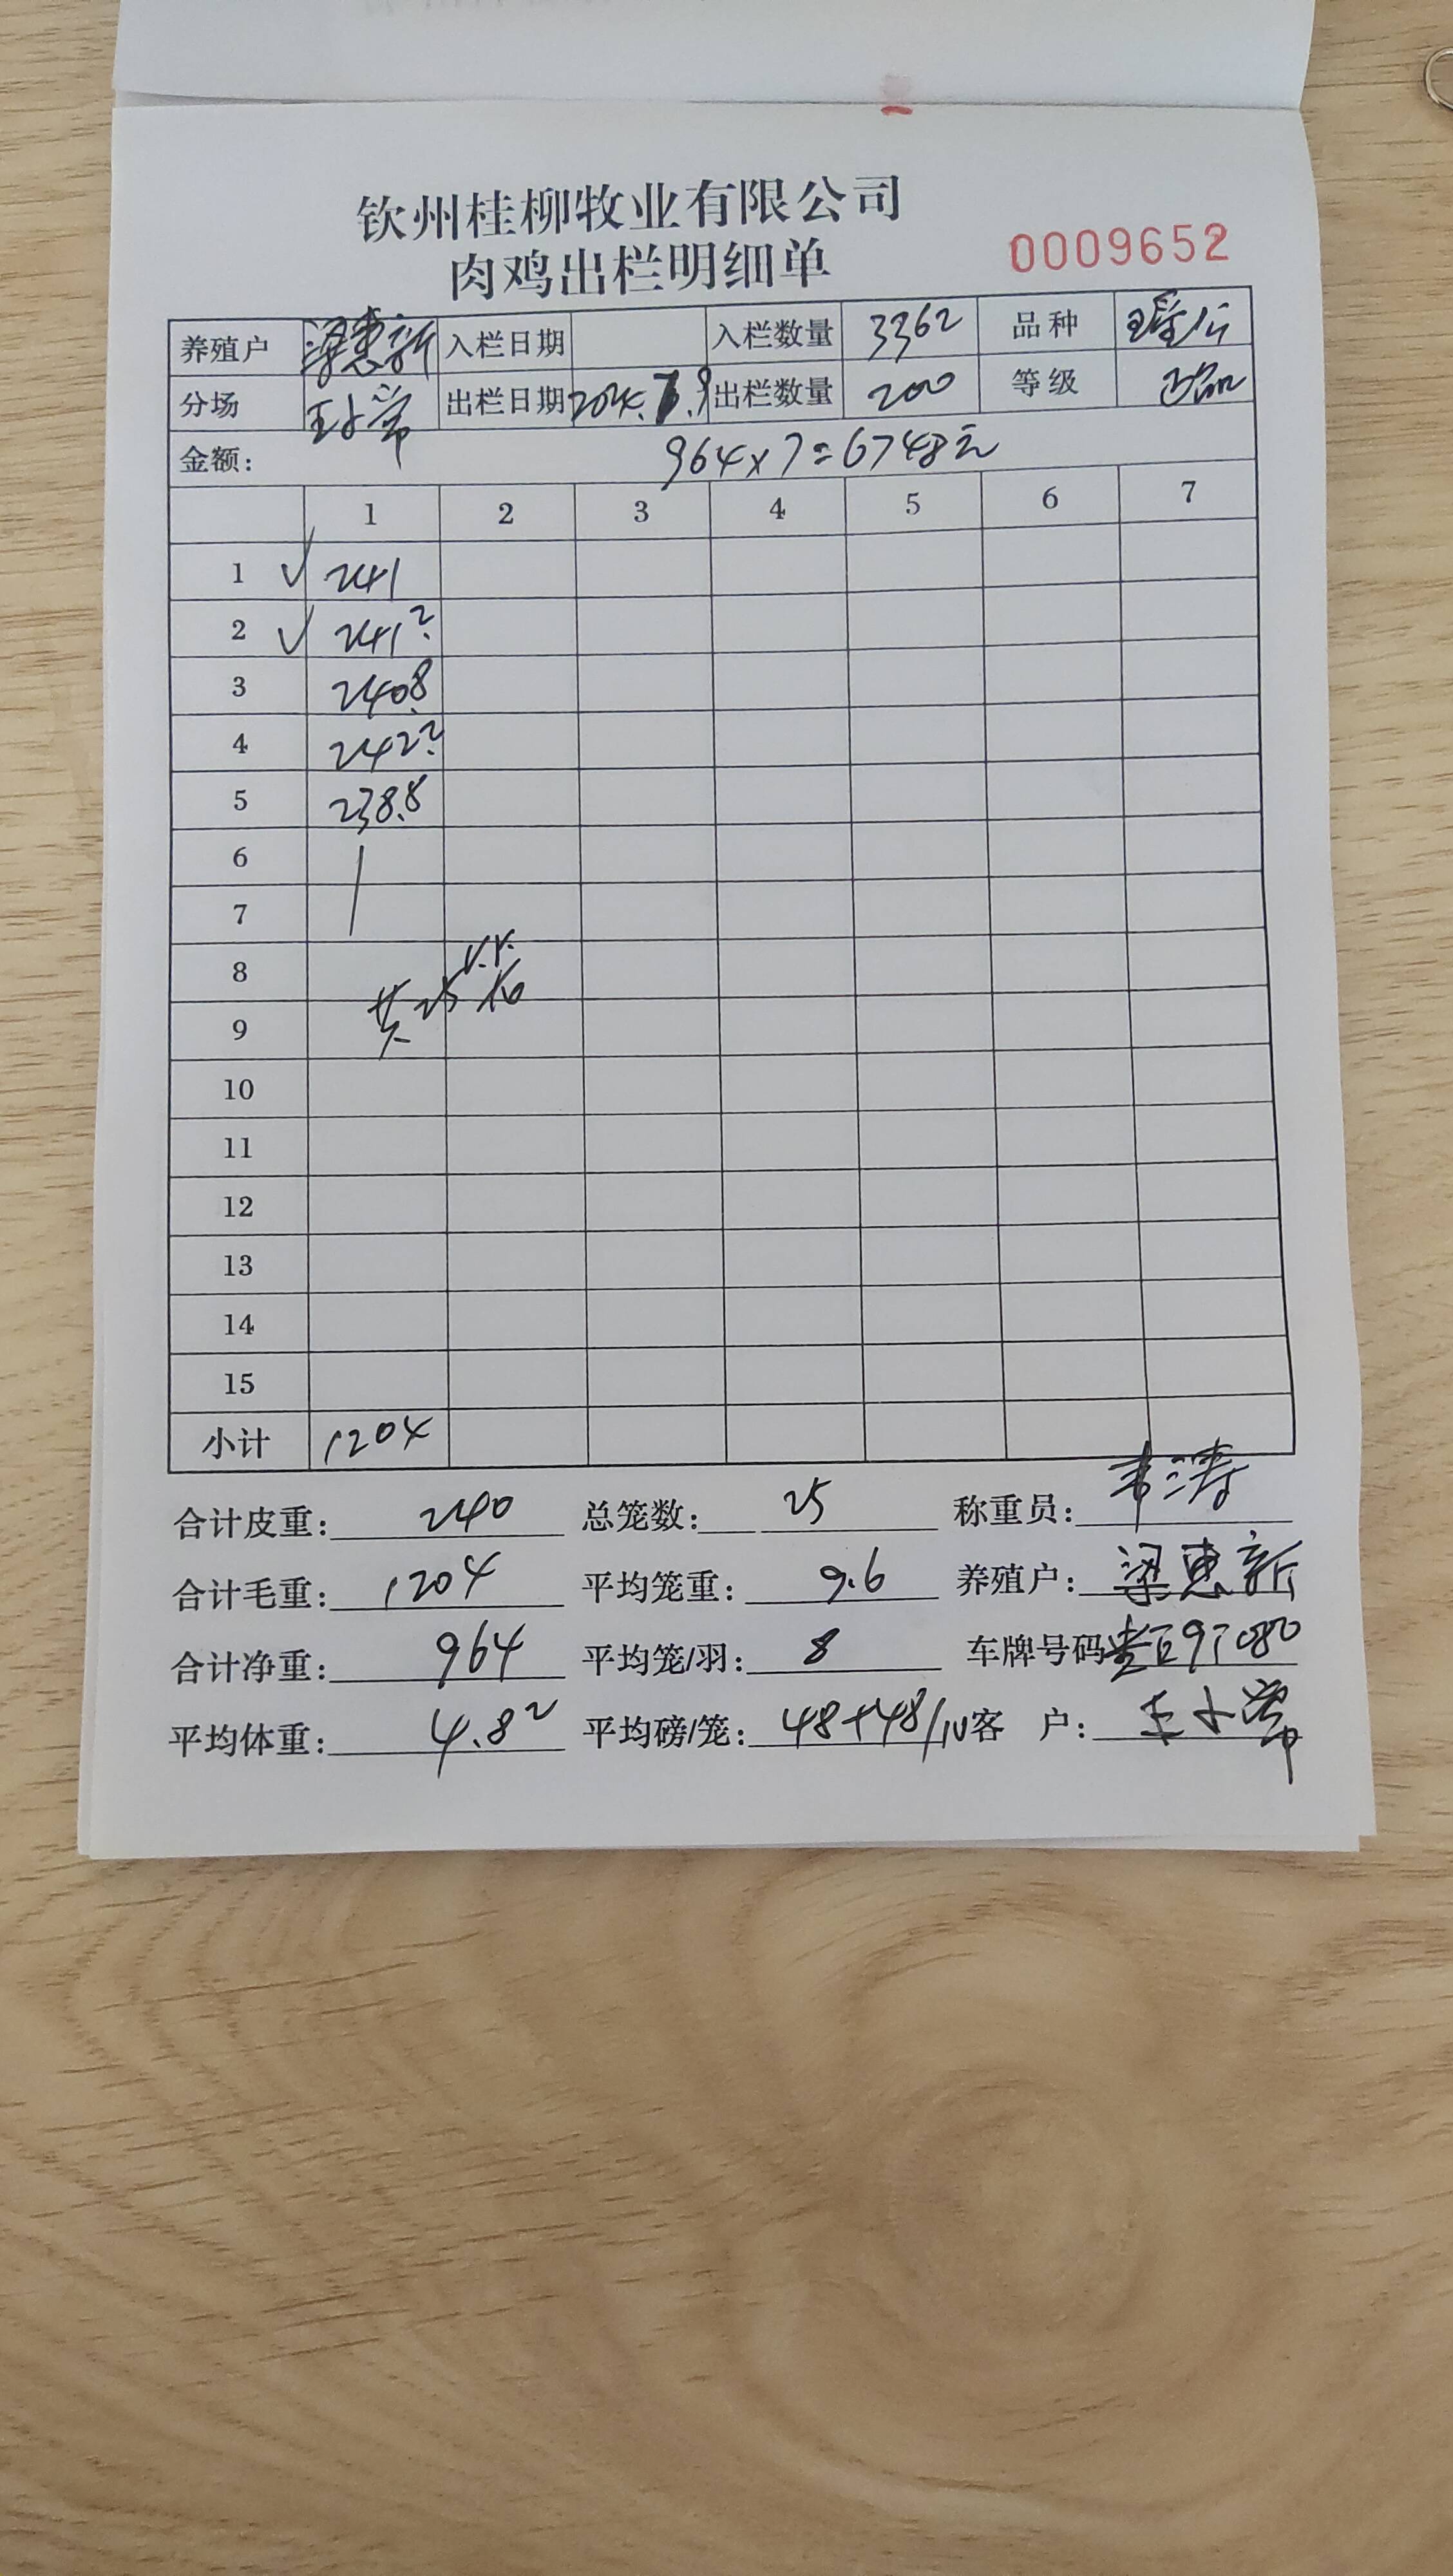 钦州桂柳牧业有限公司
肉鸡出栏明细单
0009652
养殖户 梁惠新 入栏日期 入栏数量 3362 品种
分场 出栏日期 出栏数量 200 等级
金额: 964×7=6748元
1 2 3 4 5 6 7
1 √ 241
2 √ 241.2
3 240.8
4 242.2
5 238.8
6
7
8
9 共25
10
11
12
13
14
15
小计 1204
合计皮重: 240 总笼数: 25 称重员: 韦涛
合计毛重: 1204 平均笼重: 9.6 养殖户: 梁惠新
合计净重: 964 平均笼/羽: 8 车牌号码
平均体重: 4.82 平均磅/笼: 48+48/10 客 户: 王小常